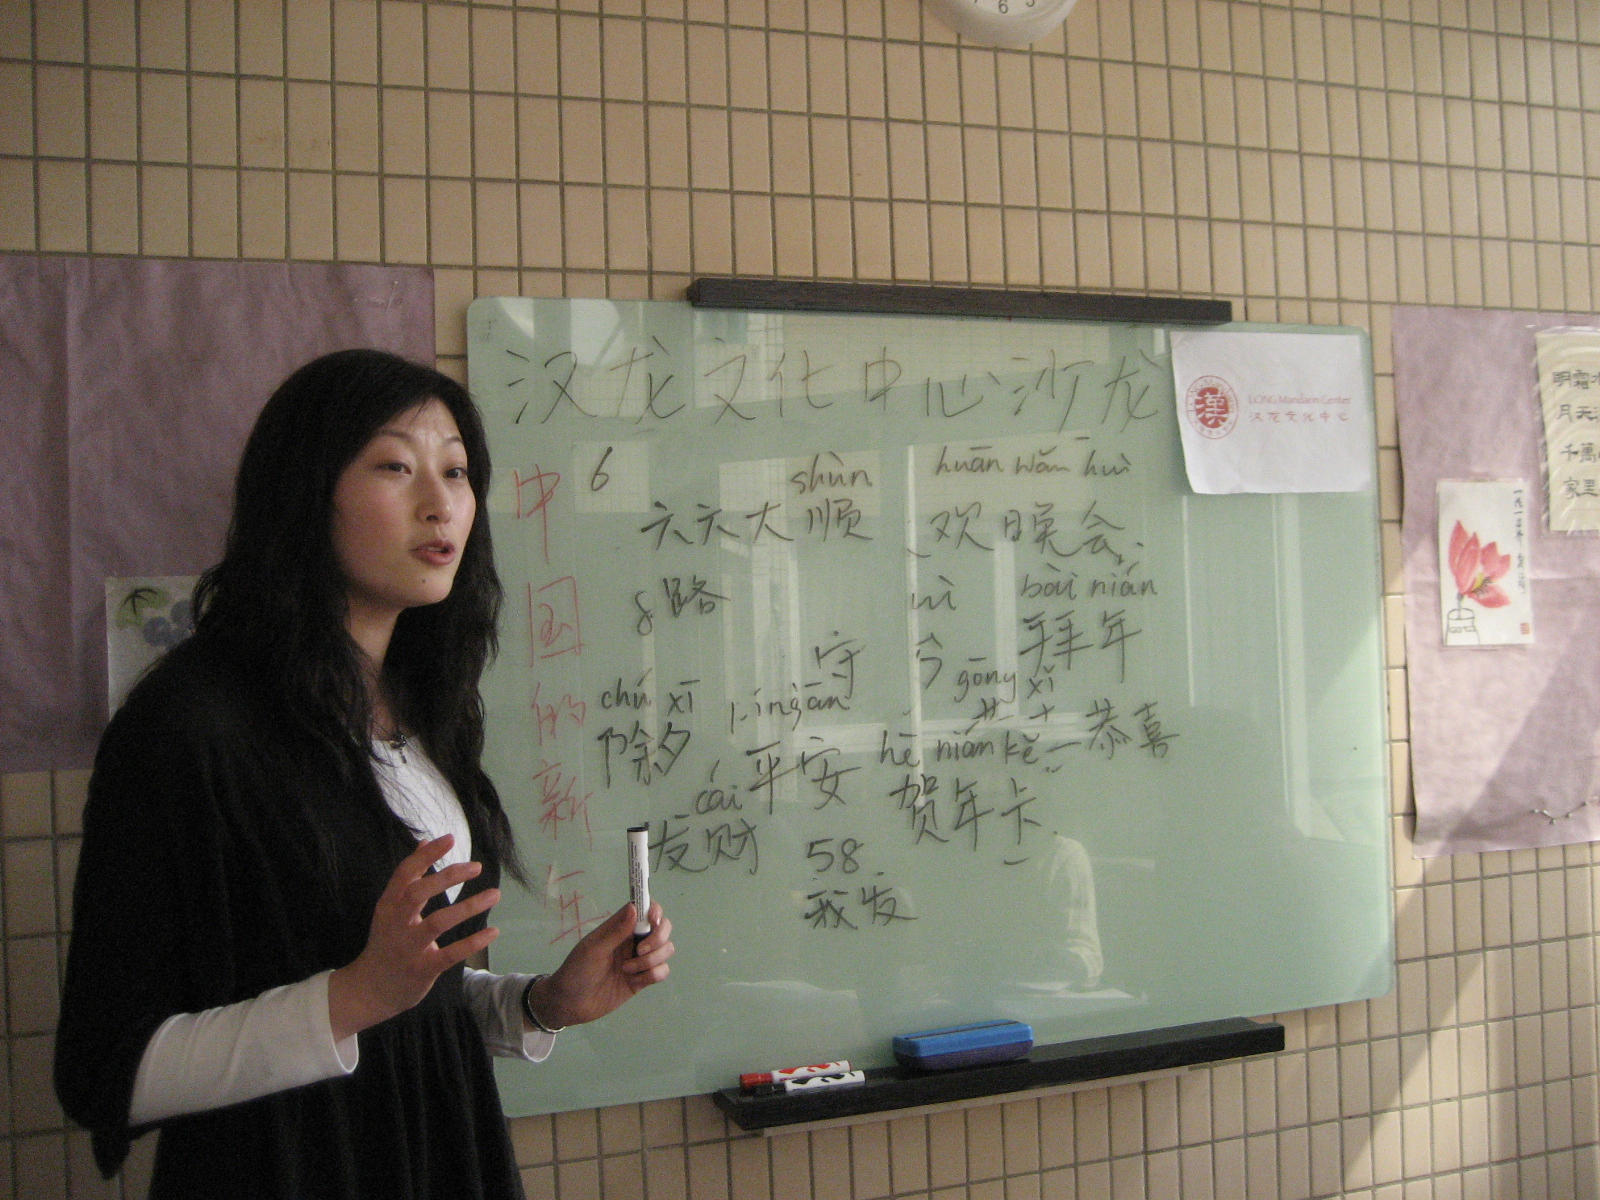 汉龙文化中心沙龙
漢
LONG Mandarin Center
汉龙文化中心
中国的新年
6
shùn
huān wǎn huì
六六大顺
欢晚会
8路
bài nián
拜年
守
今
gōng xǐ
chú xī
píng ān
除夕
平安
hè nián kǎ
恭喜
cái
发财
贺年卡
58
我发
明霜
月天
千萬
家里
6